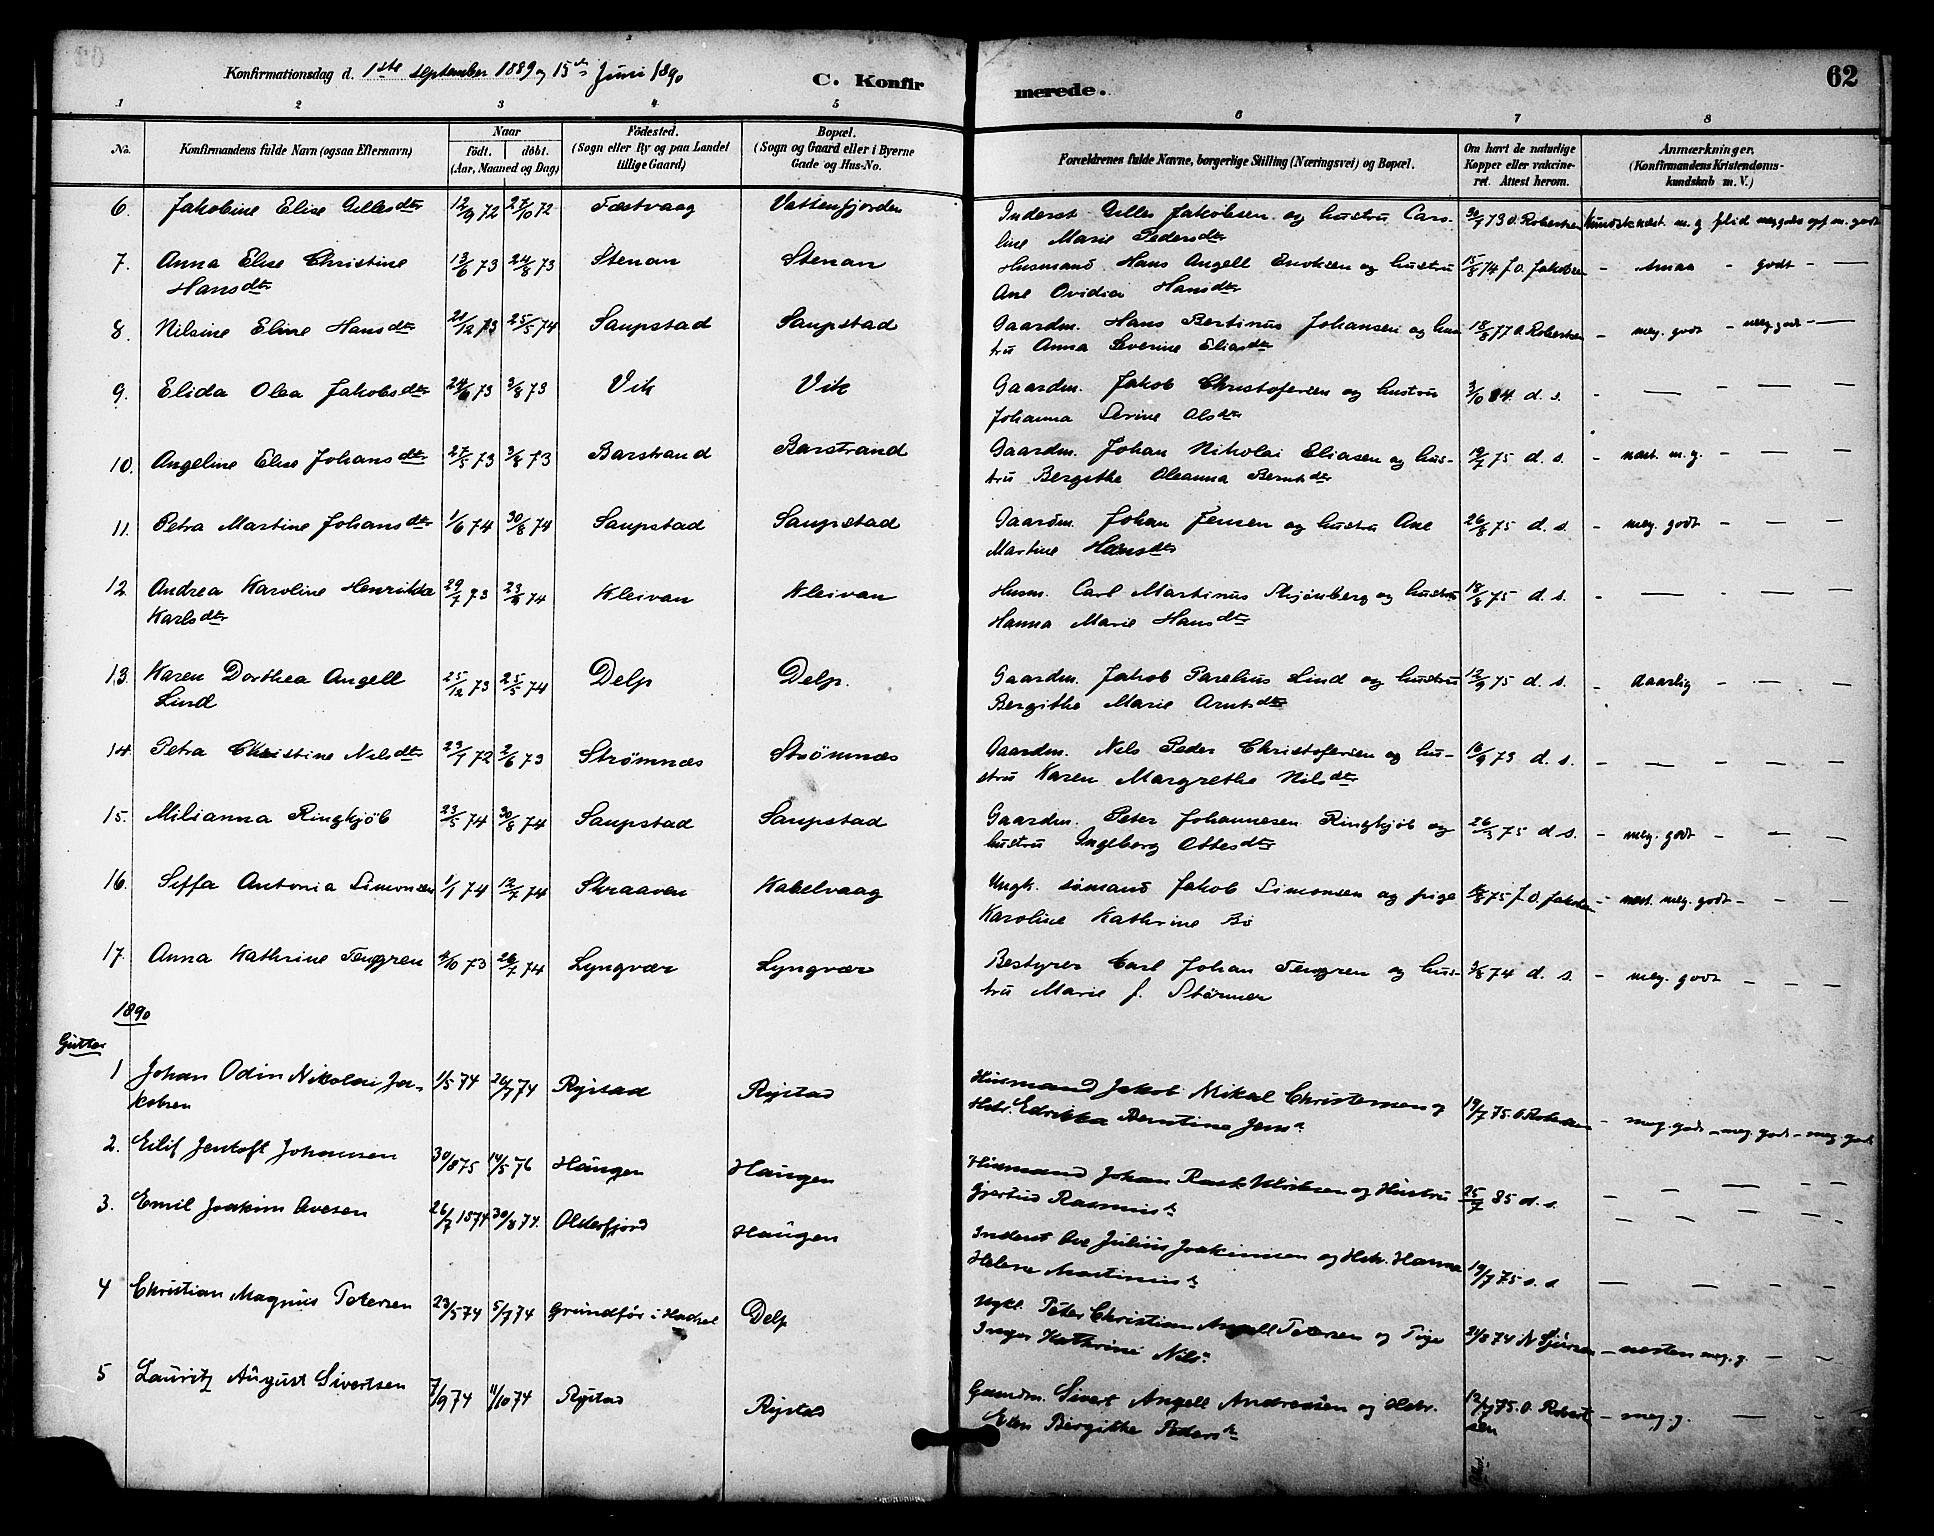 Konfirmationsdag d. 1ste september 1889 og 15de Juni 1890
C. Konfirmerede.
62
1 2 3 4 5 6 7 8
No.
Konfirmandens fulde Navn (ogsaa Efternavn)
Naar
Födt. döbt.
(Aar, Maaned og Dag)
Födested.
(Sogn eller By og paa Landet
tillige Gaard)
Bopæl.
(Sogn og Gaard eller i Byerne
Gade og Hus-No.
Forældrenes fulde Navne, borgerlige Stilling (Næringsvei) og Bopæl.
Om havt de naturlige
Kopper eller vaccine-
ret. Attest herom.
Anmærkninger.
(Konfirmandens Kristendoms-
kundskab m. V.)
6. Jakobine Elise Gillesdtr 12/9 72 27/10 72 Festvaag Vattenfjorden Inderst Gilles Jakobsen og hustru Caro-
line Marie Pedersdtr
7. Anna Elise Christine 13/6 73 24/8 73 Stenan Stenan Husmand Hans Angell Enoksen og hustru 15/8 74 J. O. Jakobsen - smaa - godt - —
Hansdtr Ane Ovidia Hansdtr
8. Nilsine Eline Hansdtr 21/12 73 25/5 74 Saupstad Saupstad Gaardm. Hans Bertinus Johansen og hus- 18/8 77 O. Robertsen - meg. godt - meg godt - —
tru Anna Severine Eliasdtr
9. Elida Olea Jakobsdtr 24/6 73 3/8 73 Vik Vik Gaardm. Jakob Christofersen og hustru 3/10 84 d. s. - — - — —
Johanna Serine Olsdtr
10. Angeline Elise Johansdtr 27/5 73 3/8 73 Barstrand Barstrand Gaardm. Johan Nikolai Eliasen og hus- 19/7 75 d. s. - næst. m. g. - — —
tru Bergithe Oleanna Berntsdtr
11. Petra Martine Johansdtr 1/6 74 30/8 74 Saupstad Saupstad Gaardm. Johan Jensen og hustru Ane 26/8 75 d. s. - meg. godt - — —
Martine Hansdtr
12 Andrea Karoline Henrikka 29/7 73 74 Kleivan Kleivan Husm. Carl Martinus og hustru 18/8 75 d. s. - — - — —
Karlsdtr Hanna Marie Hansdtr
13. Karen Dorthea Angell 25/12 73 25/5 74 Delp Delp. Gaardm. Jakob Parelius Lind og hustru 12/9 75 d. s. - daarlig - — —
Lind Bergithe Marie Arntsdtr
14. Petra Christine Nilsdtr 72 2/6 73 Strømnæs Strømnæs Gaardm. Nels Peder Christofersen og hu- 16/9 73 d. s. - — - — —
stru Karen Margrethe Nilsdtr
15. Milianna Ringkjøb 23/5 74 30/8 74 Saupstad Saupstad Gaardm. Peter Johannesen Ringkjøb og 26/3 75 d s. - meg. godt - — —
hustru Ingeborg Ottesdtr
16. Seffa Antonia Simonsen 1/1 74 12/7 74 Skraaven Kabelvaag Ungk. sømand Jakob Simonsen og pige 75 J. O. Jakobsen - næst. meg. godt - - -
Karoline Kathrine Bø
17. Anna Kathrine Tengren 4/10 73 26/7 74 Lyngvær Lyngvær Bestyrer Carl Johan Tengren og hus- 3/8 74 d. s - meg. godt - - -
tru Marie f. Størmer
1890
Gutter
1 Johan Odin Nikolai Ja- 1/5 74 26/7 74 Rystad Rystad Husmand Jakob Mikal Christensen og 19/7 75. O. Robertsen - meg. godt - meg. godt - meg. godt
kobsen Hstr. Edrikka Berntine Jensd.
2. Eilif Jentoft Johansen 30/8 75 14/5 76 Haugen Haugen Husmand Johan Rask Ulriksen og Hustru 25/7 85 d. s. — — — - -
Gjertud Rasmusd.
3. Emil Joakim Ovesen 26/7 1874 30/8 74. Olderfjord Haugen Inderst Ove Julius Joakimsen og Hstr. Hanna 19/7 75 s. s — — - -
Helene Martinusd.
4 Christian Magnus Petersen 23/5 74 5/7 74 Grundfør i Hadsel Delp Ugkl. Peter Christian Angell Petersen og Pige 21/8 74 N Sjursen - nesten meg. g. - -
Inger Kathrine Nilsd.
5 Lauritz August Sivertsen 7/9 74 11/10 74 Rystad Rystad Gaardm. Sivert Angell Andreasen og Hstr. 12/9 75. O. Robert - meg. g. — -
sen
Elen Bergitthe Pedersd.